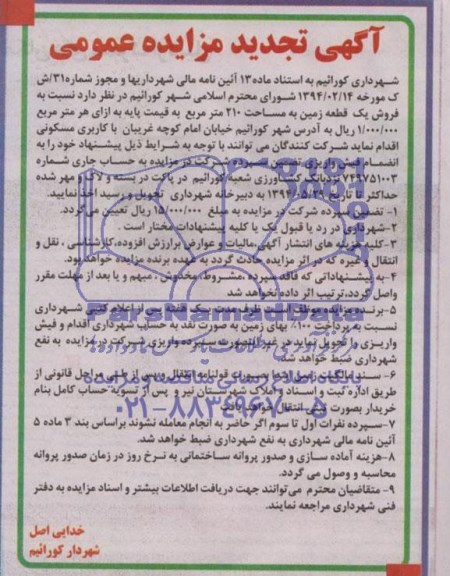 آگهی تجدید مزایده عمومی
شهرداری کورائیم به استناد ماده۱۳ آئین نامه مالی شهرداریها و مجوز شماره۳۱/ش
ک مورخه ۱۳۹۴/۰۲/۱۴ شورای محترم اسلامی شهر کورائیم در نظر دارد نسبت به
فروش یک قطعه زمین به مساحت ۲۱۰ متر مربع به قیمت پایه به ازای هر متر مربع
۱/۰۰۰/۰۰۰ ریال به آدرس شهر کورائیم خیابان امام کوچه غریبان با کاربری مسکونی
اقدام نماید شرکت کنندگان می توانند با توجه به شرایط ذیل پیشنهاد خود را به
انضمام فیش واریزی تضمین سپرده شرکت در مزایده به حساب جاری شماره
۷۴۹۷۵۱۰۰۳ نزد بانک کشاورزی شعبه کورائیم در پاکت در بسته و لاک و مهر شده
حداکثر تا تاریخ ۱۳۹۴/۰۵/۲۹ به دبیرخانه شهرداری تحویل و رسید اخذ نمایید.
۱- تضمین سپرده شرکت در مزایده به مبلغ ۱۵/۰۰۰/۰۰۰ ریال تعیین می گردد.
۲-شهرداری در رد یا قبول یک یا کلیه پیشنهادات مختار است.
۳-کلیه هزینه های انتشار آگهی،مالیات و عوارض برارزش افزوده،کارشناسی ، نقل و
انتقال و غیره که در اثر مزایده حادث گردد به عهده برنده مزایده خواهد بود.
۴-به پیشنهاداتی که فاقد سپرده ،مشروط،مخدوش ، مبهم و یا بعد از مهلت مقرر
واصل گردد،ترتیب اثر داده نخواهد شد
۵-برنده مزایده موظف است ظرف مدت یک هفته پس از اعلام کتبی شهرداری
نسبت به پرداخت ۱۰۰٪ بهای زمین به صورت نقد به حساب شهرداری اقدام و فیش
واریزی را تحویل نماید در غیر اینصورت سپرده واریزی شرکت در مزایده به نفع
شهرداری ضبط خواهد شد.
۶- سند مالکیت زمین بصورت قولنامه انتقال و پس از طی مراحل قانونی از
طریق اداره ثبت و اسناد و املاک شهرستان نیر و پس از تسویه حساب کامل بنام
خریدار بصورت انتقال خواهد یافت.
۷-سپرده نفرات اول تا سوم اگر حاضر به انجام معامله نشوند براساس بند ۳ ماده ۵
آئین نامه مالی شهرداری به نفع شهرداری ضبط خواهد شد.
۸-هزینه آماده سازی و صدور پروانه ساختمانی به نرخ روز در زمان صدور پروانه
محاسبه و وصول می گردد.
۹- متقاضیان محترم می‌توانند جهت دریافت اطلاعات بیشتر و اسناد مزایده به دفتر
فنی شهرداری مراجعه نمایند.
خدایی اصل
شهردار کورائیم
ParsNamadData
پایگاه اطلاع رسانی مناقصه و مزایده
۰۲۱-۸۸۳۴۹۶۷۰-۵